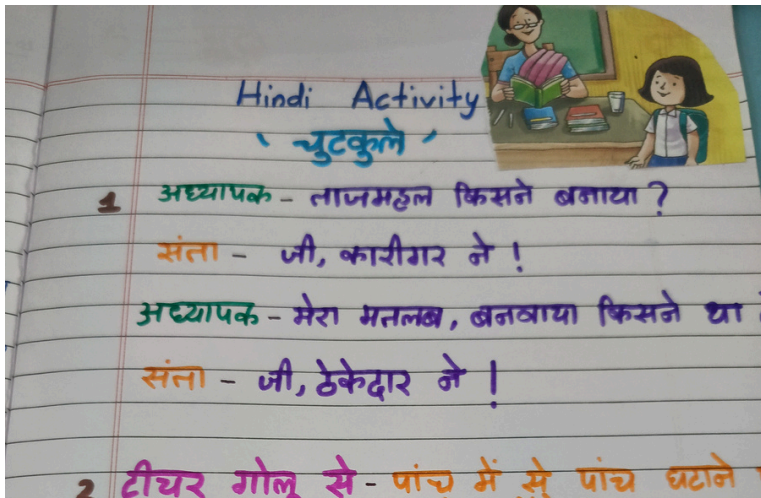 Hindi Activity
' चुटकुले '
1 अध्यापक - ताजमहल किसने बनाया ?
संता - जी, कारीगर ने !
अध्यापक - मेरा मतलब, बनवाया किसने था
संता - जी, ठेकेदार ने !
2 टीचर गोलू से - पांच में से पांच घटाने